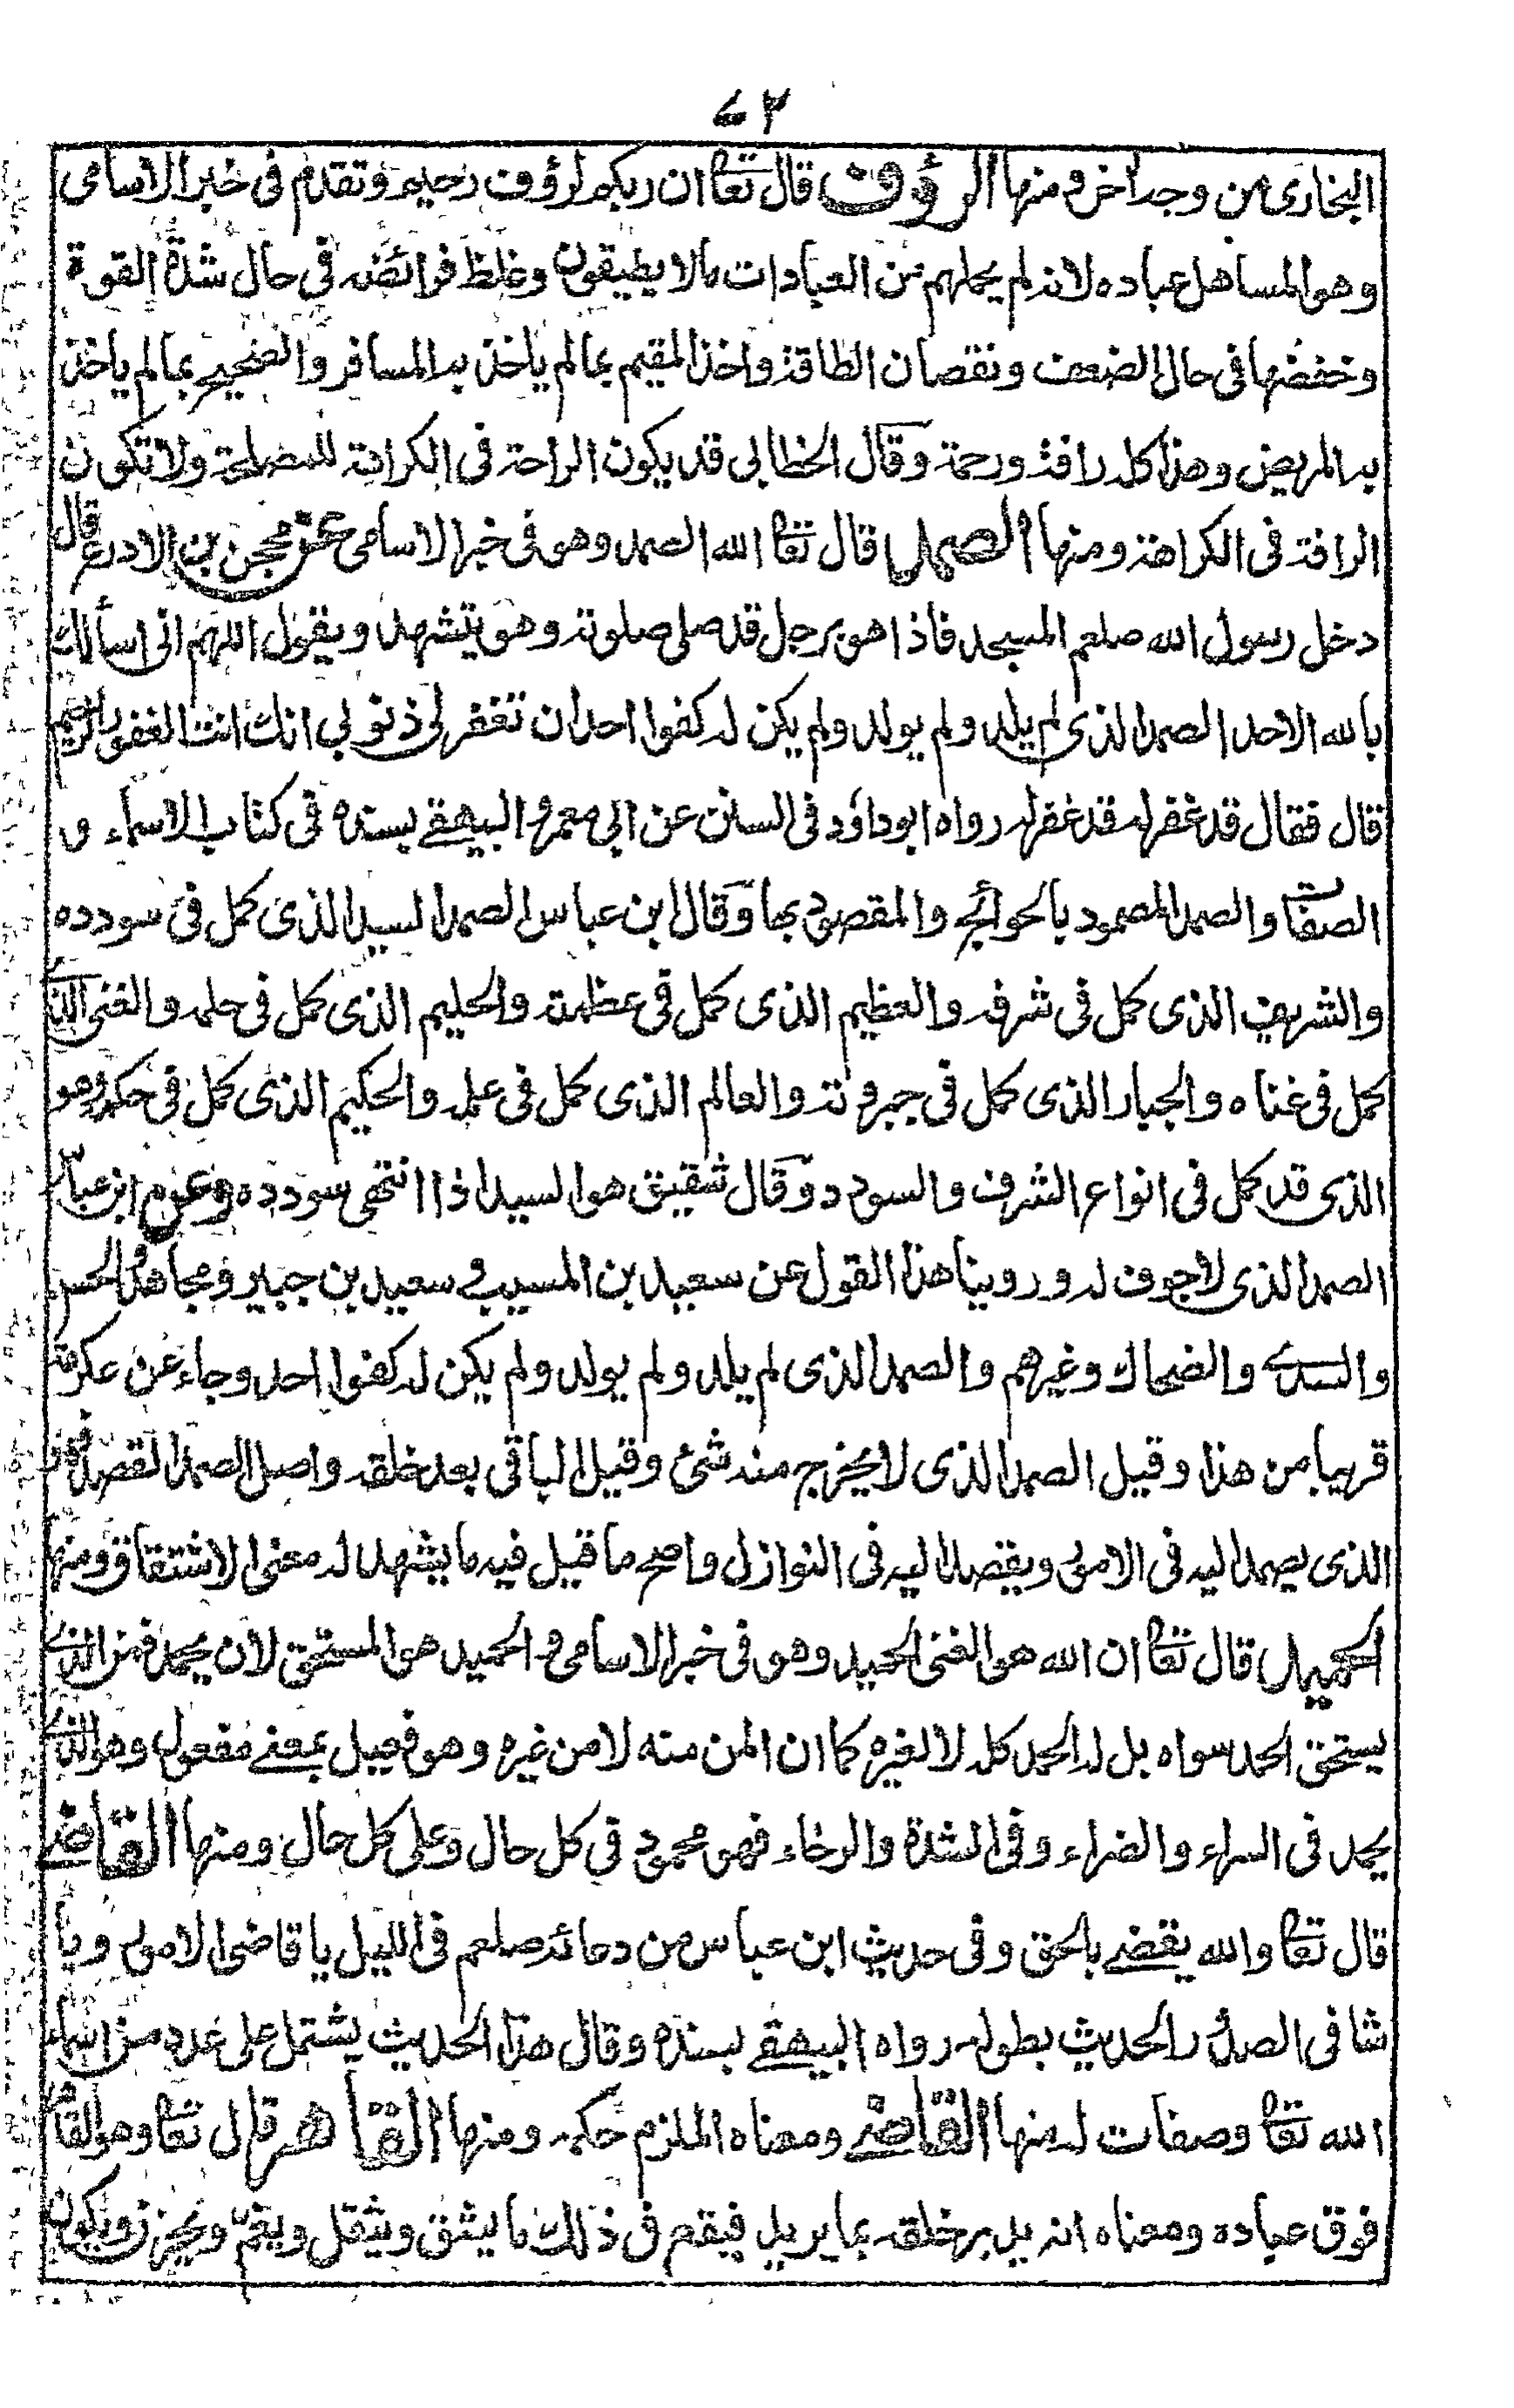 ٦٢
البخاري من وجه اخر ومنها الرؤف قال تعا ان ربكم لرؤف رحيم وتقدم فى خبر الاسامى
وهو المساهل عباده لانه لم يحملهم من العبادات ما لا يطيقون وغلظ فرائضه فى حال شدة القوة
وخفضها فى حال الضعف ونقصان الطاقة واخذ المقيم بما لم ياخذ به المسافر والصحيح بما لم ياخذ
به المريض وهذا كله رافة ورحمة وقال الخطابى قد يكون الراحة فى الكراهة للمصلحة ولا تكون
الرافة فى الكراهة ومنها الصمد قال تعا الله الصمد وهو فى خبر الاسامى عن محجن بن الادرع قال
دخل رسول الله صلعم المسجد فاذا هو برجل قد صلى صلوته وهو يتشهد ويقول اللهم انى اسألك
بالله الاحد الصمد الذى لم يلد ولم يولد ولم يكن له كفوا احد ان تغفر لى ذنوبى انك انت الغفور الرحيم
قال فقال قد غفر له قد غفر له رواه ابوداؤد فى السنن عن ابى معمر والبيهقے بسنده فى كتاب الاسماء و
الصفات والصمد المصمود بالحوائج والمقصود بها وقال ابن عباس الصمد السيد الذى كمل فى سودده
والشريف الذى كمل فى شرفه والعظيم الذى كمل فى عظمته والحليم الذى كمل فى حلمه والغنى الذى
كمل فى غناه والجبار الذى كمل فى جبروته والعالم الذى كمل فى علمه والحكيم الذى كمل فى حكمه وهو
الذى قد كمل فى انواع الشرف والسودد وقال شقيق هو السيد اذا انتهى سودده وعن ابن عباس
الصمد الذى لا جوف له وروينا هذا القول عن سعيد بن المسيب وسعيد بن جبير ومجاهد والحسن
والسدے والضحاك وغيرهم والصمد الذى لم يلد ولم يولد ولم يكن له كفوا احد وجاء عن عكرمة
قريبا من هذا وقيل الصمد الذى لا يخرج منه شئ وقيل الباقى بعد خلقه واصل الصمد القصد
الذى يصمد اليه فى الامور ويقصد اليه فى النوازل واصح ما قيل فيه ما يشهد له معنى الاشتقاق ومنها
الحميد قال تعا ان الله هو الغنى الحميد وهو فى خبر الاسامى والحميد هو المستحق لان يحمد فمن الذے
يستحق الحمد سواه بل له الحمد كله لا لغيره كما ان المن منه لا من غيره وهو فعيل بمعنے مفعول وهو الذے
يحمد فى السراء والضراء وفى الشدة والرخاء فهو محمود فى كل حال وعلى كل حال ومنها القاضے
قال تعا والله يقضے بالحق وفى حديث ابن عباس من دعائه صلعم فى الليل يا قاضى الامور ويا
شافى الصدور الحديث بطوله رواه البيهقے بسنده وقال هذا الحديث يشتمل على عدد من اسماء
الله تعا وصفات له منها القاضے ومعناه الملزم حكمه ومنها القاهر قال تعا وهو القاهر
فوق عباده ومعناه انه يدبر خلقه بما يريد فيقع فى ذلك ما يشق ويثقل ويغم ويحزن ويكون